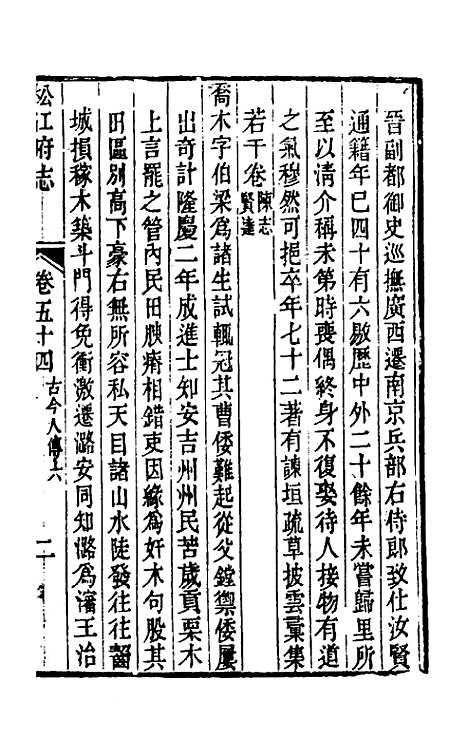 晉副都御史巡撫廣西遷南京兵部右侍郎致仕汝賢
通籍年已四十有六敭歷中外二十餘年未嘗歸里所
至以清介稱未第時喪偶終身不復娶待人接物有道
之氣穆然可挹卒年七十二著有諫垣疏草披雲彚集
若干卷陳志賢達
喬木字伯梁爲諸生試輒冠其曹倭難起從父鏜禦倭屢
出奇計隆慶二年成進士知安吉州州民苦歲貢栗木
上言罷之管内民田腴瘠相錯吏因緣爲奸木句股其
田區别高下豪右無所容私天目諸山水陡發往往齧
城損稼木築斗門得免衝激遷潞安同知潞爲瀋王治
松江府志
卷五十四
古今人傳六
二